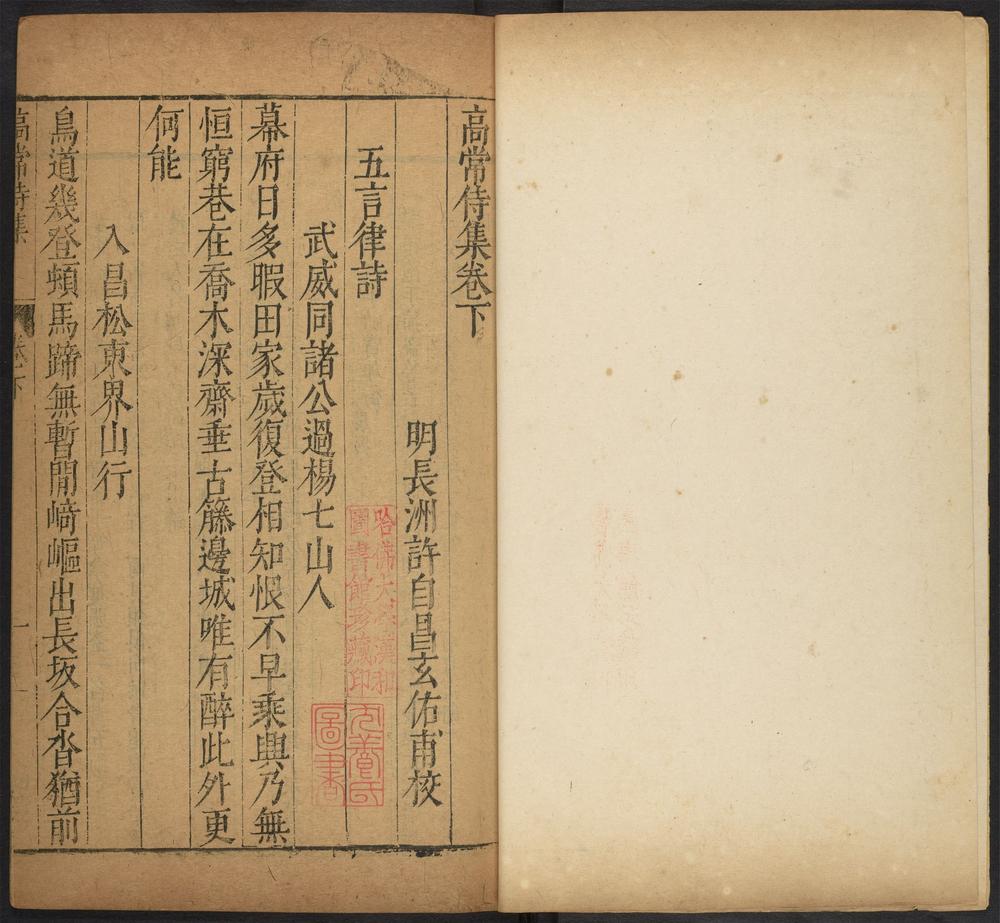 高常侍集卷下
明長洲許自昌玄佑甫校
五言律詩
武威同諸公過楊七山人
幕府日多暇田家歲復登相知恨不早乘興乃無
恒窮巷在喬木深齋垂古籐邊城唯有醉此外更
何能
入昌松東界山行
鳥道幾登頓馬蹄無暫閒崎嶇出長坂合沓猶前
高常侍集
卷下
一
哈佛大學漢和
圖書館珍藏印
圖書